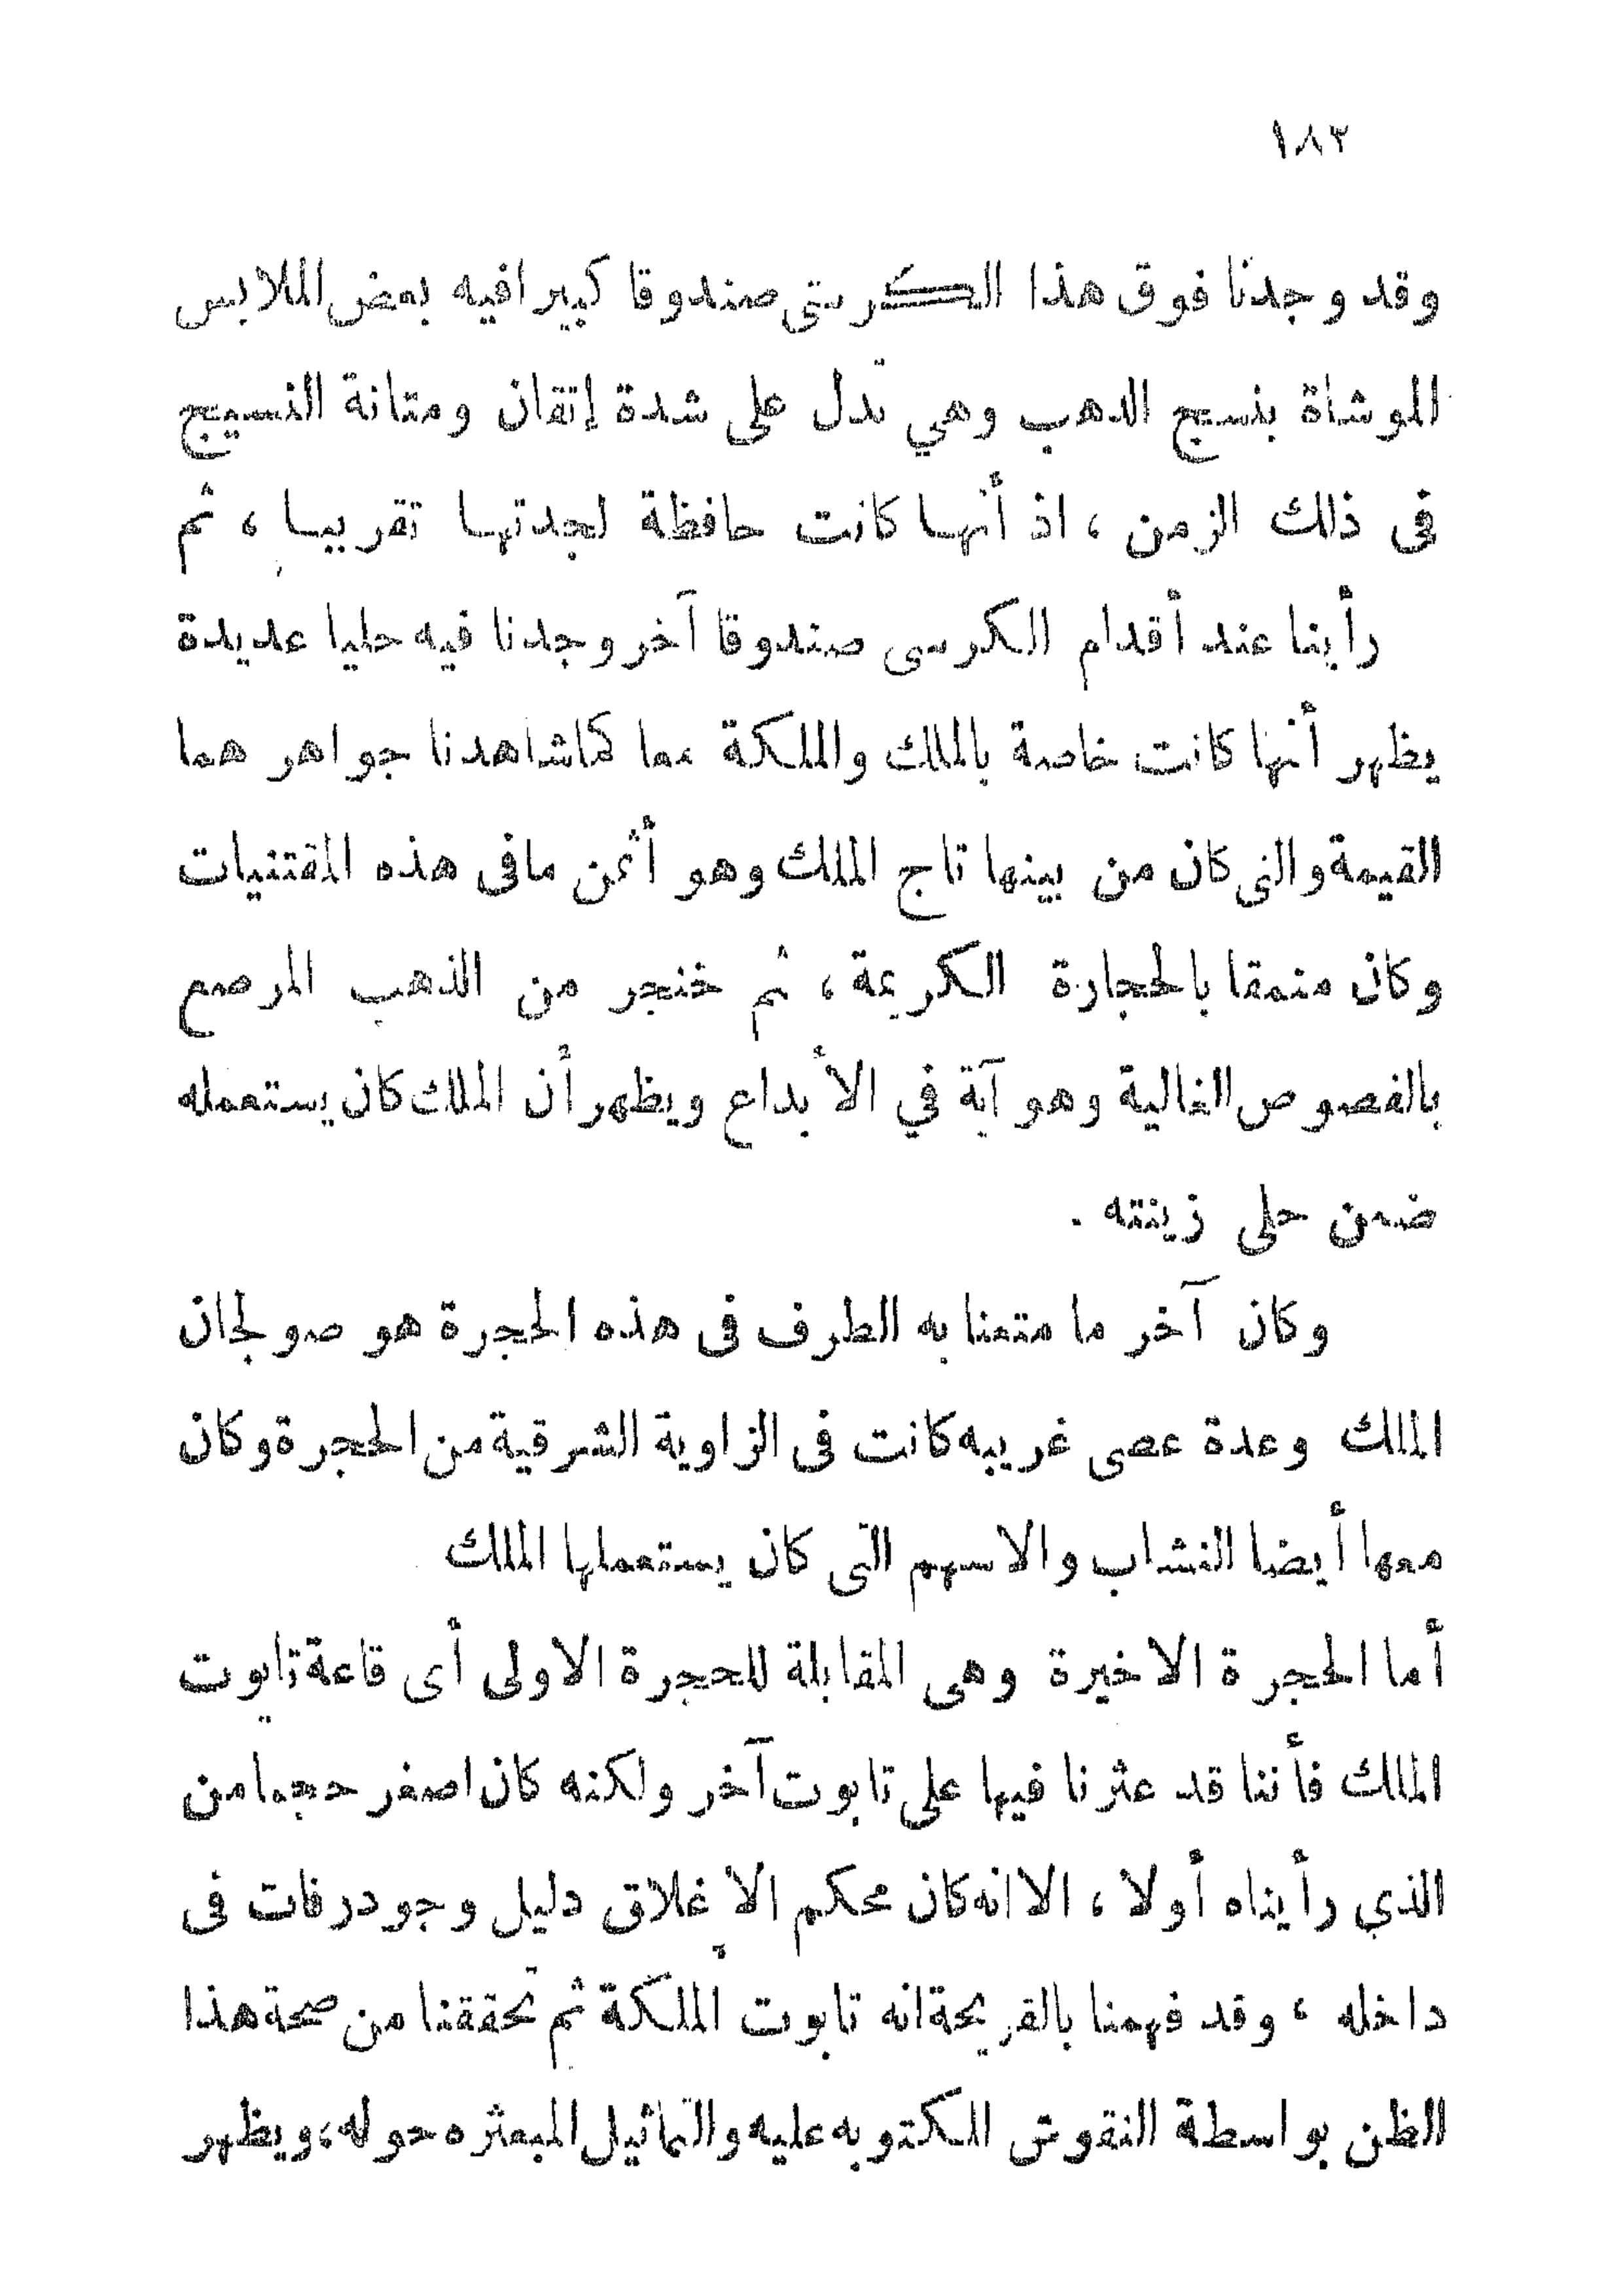 ١٨٢
وقد وجدنا فوق هذا الكرسى صندوقا كبيرا فيه بعض الملابس
الموشاة بنسيج الذهب وهي تدل على شدة إتقان ومتانة النسيج
فى ذلك الزمن ، اذ أنها كانت حافظة لجدتها تقريبا ، ثم
رأينا عند أقدام الكرسى صندوقا آخر وجدنا فيه حليا عديدة
يظهر أنها كانت خاصة بالملك والملكة معا كما شاهدنا جواهر هما
القيمة والتى كان من بينها تاج الملك وهو أثمن مافى هذه المقتنيات
وكان منمقا بالحجارة الكريمة ، ثم خنجر من الذهب المرصع
بالفصوص الغالية وهو آية في الأبداع ويظهر أن الملك كان يستعمله
ضمن حلى زينته .
وكان آخر ما متعنا به الطرف فى هذه الحجرة هو صولجان
الملك وعدة عصى غريبه كانت فى الزاوية الشرقية من الحجرة وكان
معها أيضا النشاب والاسهم التى كان يستعملها الملك
أما الحجرة الاخيرة وهى المقابلة للحجرة الاولى أى قاعة تابوت
الملك فأننا قد عثرنا فيها على تابوت آخر ولكنه كان اصغر حجما من
الذي رأيناه أولا ، الا انه كان محكم الإغلاق دليل وجود رفات فى
داخله ، وقد فهمنا بالقريحة انه تابوت الملكة ثم تحققنا من صحة هذا
الظن بواسطة النقوش المكتوبه عليه والتماثيل المبعثره حوله ، ويظهر